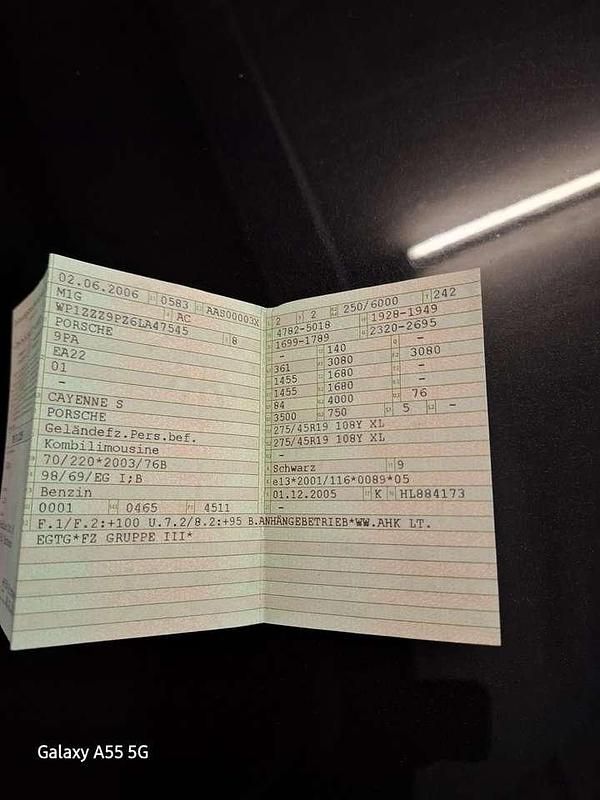 02.06.2006 0583 AAS00003X
M1G AC
WP1ZZZ9PZ6LA47545
PORSCHE 8
9PA
EA22
01
-
CAYENNE S
PORSCHE
Geländefz.Pers.bef.
Kombilimousine
70/220*2003/76B
98/69/EG I;B
Benzin
0001 0465 4511
2 2 250/6000 242
4782-5018 1928-1949
1699-1789 2320-2695
- 140 -
361 3080 3080
1455 1680 -
1455 1680 -
84 4000 76
3500 750 5 -
275/45R19 108Y XL
275/45R19 108Y XL
-
Schwarz 9
e13*2001/116*0089*05
01.12.2005 K HL884173
-
F.1/F.2:+100 U.7.2/8.2:+95 B.ANHÄNGEBETRIEB*WW.AHK LT.
EGTG*FZ GRUPPE III*
Galaxy A55 5G